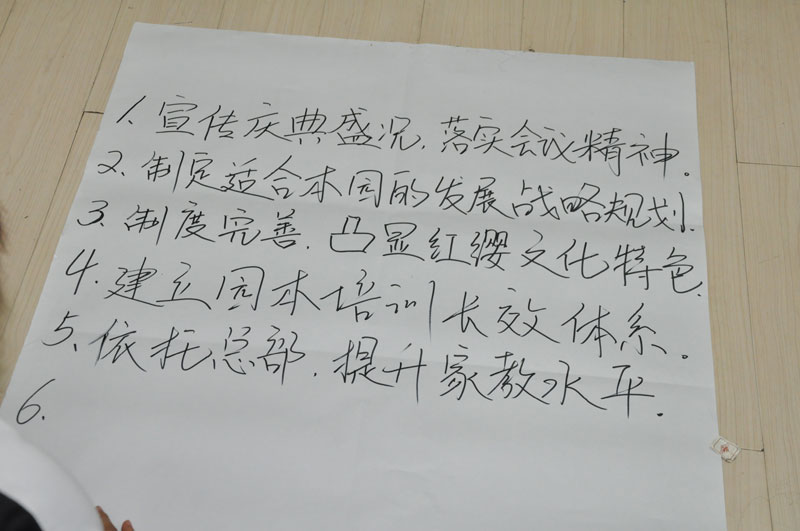 1、宣传庆典盛况，落实会议精神。
2、制定适合本园的发展战略规划.
3、制度完善，凸显红缨文化特色.
4、建立园本培训长效体系。
5、依托总部，提升家教水平.
6、